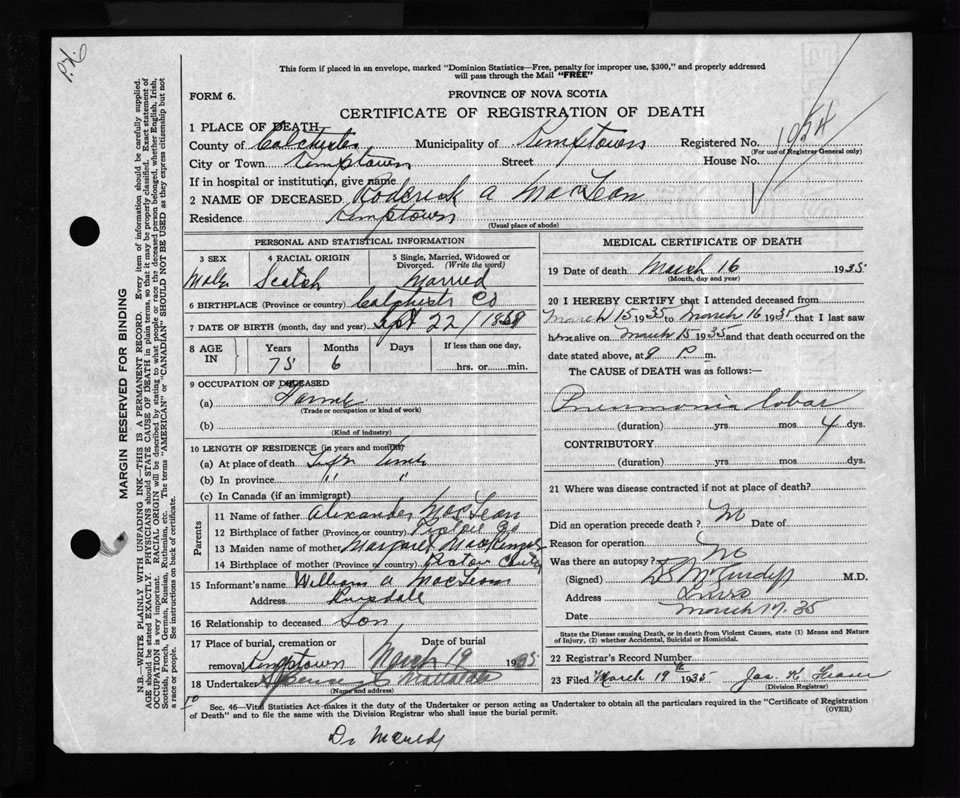 P.X.
This form if placed in an envelope, marked "Dominion Statistics—Free, penalty for improper use, $300," and properly addressed
will pass through the Mail "FREE"
FORM 6.
PROVINCE OF NOVA SCOTIA
CERTIFICATE OF REGISTRATION OF DEATH
1 PLACE OF DEATH
County of Colchester Municipality of Kemptown Registered No. 1924
(For use of Registrar General only)
City or Town Kemptown Street House No.
If in hospital or institution, give name
2 NAME OF DECEASED Roderick A MacLean
Residence Kemptown
(Usual place of abode)
PERSONAL AND STATISTICAL INFORMATION
3 SEX 4 RACIAL ORIGIN 5 Single, Married, Widowed or Divorced. (Write the word)
Male Scotch Married
6 BIRTHPLACE (Province or country) Colchester Co
7 DATE OF BIRTH (month, day and year) Sept 22/1858
8 AGE IN Years Months Days If less than one day,
75 6 hrs. or min.
9 OCCUPATION OF DECEASED
(a) Farmer
(Trade or occupation or kind of work)
(b)
(Kind of industry)
10 LENGTH OF RESIDENCE (in years and months)
(a) At place of death Life time
(b) In province " "
(c) In Canada (if an immigrant)
Parents
11 Name of father Alexander MacLean
12 Birthplace of father (Province or country) Pictou Co
13 Maiden name of mother Margaret MacKenzie
14 Birthplace of mother (Province or country) Pictou County
15 Informant's name William A MacLean
Address Riversdale
16 Relationship to deceased Son
17 Place of burial, cremation or removal Kemptown Date of burial March 19 1935
18 Undertaker
(Name and address)
MEDICAL CERTIFICATE OF DEATH
19 Date of death March 16 1935
(Month, day and year)
20 I HEREBY CERTIFY that I attended deceased from
March 15 1935 to March 16 1935 that I last saw
him alive on March 15 1935 and that death occurred on the
date stated above, at 9 P m.
The CAUSE of DEATH was as follows:—
Pneumonia lobar
(duration) yrs mos 4 dys.
CONTRIBUTORY
(duration) yrs. mos. dys.
21 Where was disease contracted if not at place of death?
Did an operation precede death? No Date of
Reason for operation
Was there an autopsy? No
(Signed) M.D.
Address Truro
Date March 17. 35
State the Disease causing Death, or in death from Violent Causes, state (1) Means and Nature
of Injury, (2) whether Accidental, Suicidal or Homicidal.
22 Registrar's Record Number
23 Filed March 19th 1935 Jas. K Fraser
(Division Registrar)
10
Sec. 46—Vital Statistics Act makes it the duty of the Undertaker or person acting as Undertaker to obtain all the particulars required in the "Certificate of Registration
of Death" and to file the same with the Division Registrar who shall issue the burial permit.
(OVER)
MARGIN RESERVED FOR BINDING
N.B.—WRITE PLAINLY WITH UNFADING INK—THIS IS A PERMANENT RECORD. Every item of information should be carefully supplied.
AGE should be stated EXACTLY. PHYSICIANS should STATE CAUSE OF DEATH in plain terms, so that it may be properly classified. Exact statement of
OCCUPATION is very important. RACIAL ORIGIN will be described by stating to what people or race the deceased person belonged, whether English, Irish,
Scottish, French, German, Russian, Ruthenian, etc. The terms "AMERICAN" or "CANADIAN" SHOULD NOT BE USED as they express citizenship but not
a race or people. See instructions on back of certificate.